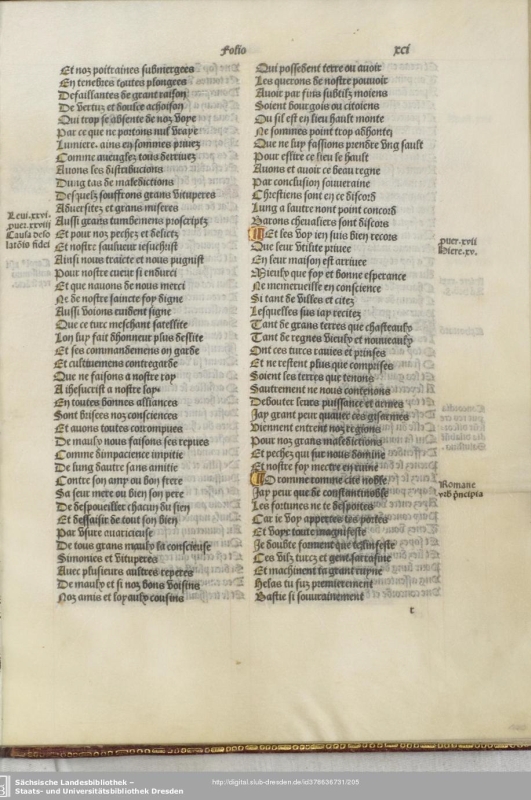 Folio
xci
Et noz poitraines submergees
En tenebres toutes plongees
Defaillantes de grant raison
De vertuz et doulce achoison
Qui trop se absente de noz voye
Par ce que ne portons nul vraye
Lumiere. ains en sommes privez
Comme aveuglez tous derivez
Avons les distribucions
Dung tas de maledictions
Desquelz souffrons grans vituperes
Adversitez et grans miseres
Aussi grans tumbemens proscriptz
Et pour noz pechez et delictz
Et nostre saulveur iesuchrist
Ainsi nous traicte et nous pugnist
Pour nostre cueur si endurci
Et que navons de nous merci
Ne de nostre saincte foy digne
Aussi voions evident signe
Que ce turc meschant satellite
Lon luy fait dhonneur plus deslite
Et ses commandemens on garde
Et cultivemens contregarde
Que ne faisons a nostre roy
A ihesucrist a nostre loy
En toutes bonnes alliances
Sont brisees noz consciences
Et avons toutes corrompues
De maulx nous faisons ses repues
Comme dimpacience impitie
De lung dautre sans amitie
Contre son amy ou bon frere
Sa seur mere ou bien son pere
De despoueiller chacun du sien
Et dessaisir de tout son bien
Par usure avaricieuse
De tous grans maulx la conscieuse
Simonies et vituperes
Avec plusieurs aultres reperes
De maulx et si noz bons voisins
Noz amis et loyaulx cousins
Levi.xxvi.
puer.xxviij
Causa deso
latõis fidei
Qui possedent terre ou avoir
Les querons de nostre pouvoir
Avoir par fins subtilz moiens
Soient bourgois ou citoiens
Ou sil est en lieu hault monte
Ne sommes point trop ahhontez
Que ne luy fassions prendre ung sault
Pour eslire ce lieu se hault
Avons et avoir ce beau regne
Par conclusion souveraine
Chrestiens sont en ce discord
Lung a lautre nont point concord
Barons chevaliers sont discors
Et les voy ien suis bien recors
Que leur utilite privee
En leur maison est arrivee
Mieulx que foy et bonne esperance
Ne mesmerueille en conscience
Si tant de villes et citez
Lesquelles sus iay recitez
Tant de grans terres que chasteaulx
Tant de regnes vieulx et nouveaulx
Ont ces turcs ravies et prinses
Et ne restent plus que comprises
Soient les terres que tenons
Sautrement ne nous contenons
Debouter leurs puissance et armes
Jay grant peur quavec ces gisarmes
Viennent entrent noz regions
Pour noz grans maledictions
Et pechez qui sur nous domine
Et nostre foy mectre en ruine
O romme romme cite noble
Jay peur que de constantinoble
Les fortunes ne te desportes
Car ie voy appertes tes portes
Et voye toute magnifeste
Je doubte forment que tesinfeste
Ces vilz turcz et gent sarrasine
Et machinent ta grant ruyne
Helas tu fuz premierement
Bastie si souverainement
puer.xvii
Hiere.xv.
Romane
urb pricipia
t
Sächsische Landesbibliothek –
Staats- und Universitätsbibliothek Dresden
http://digital.slub-dresden.de/id378636731/205